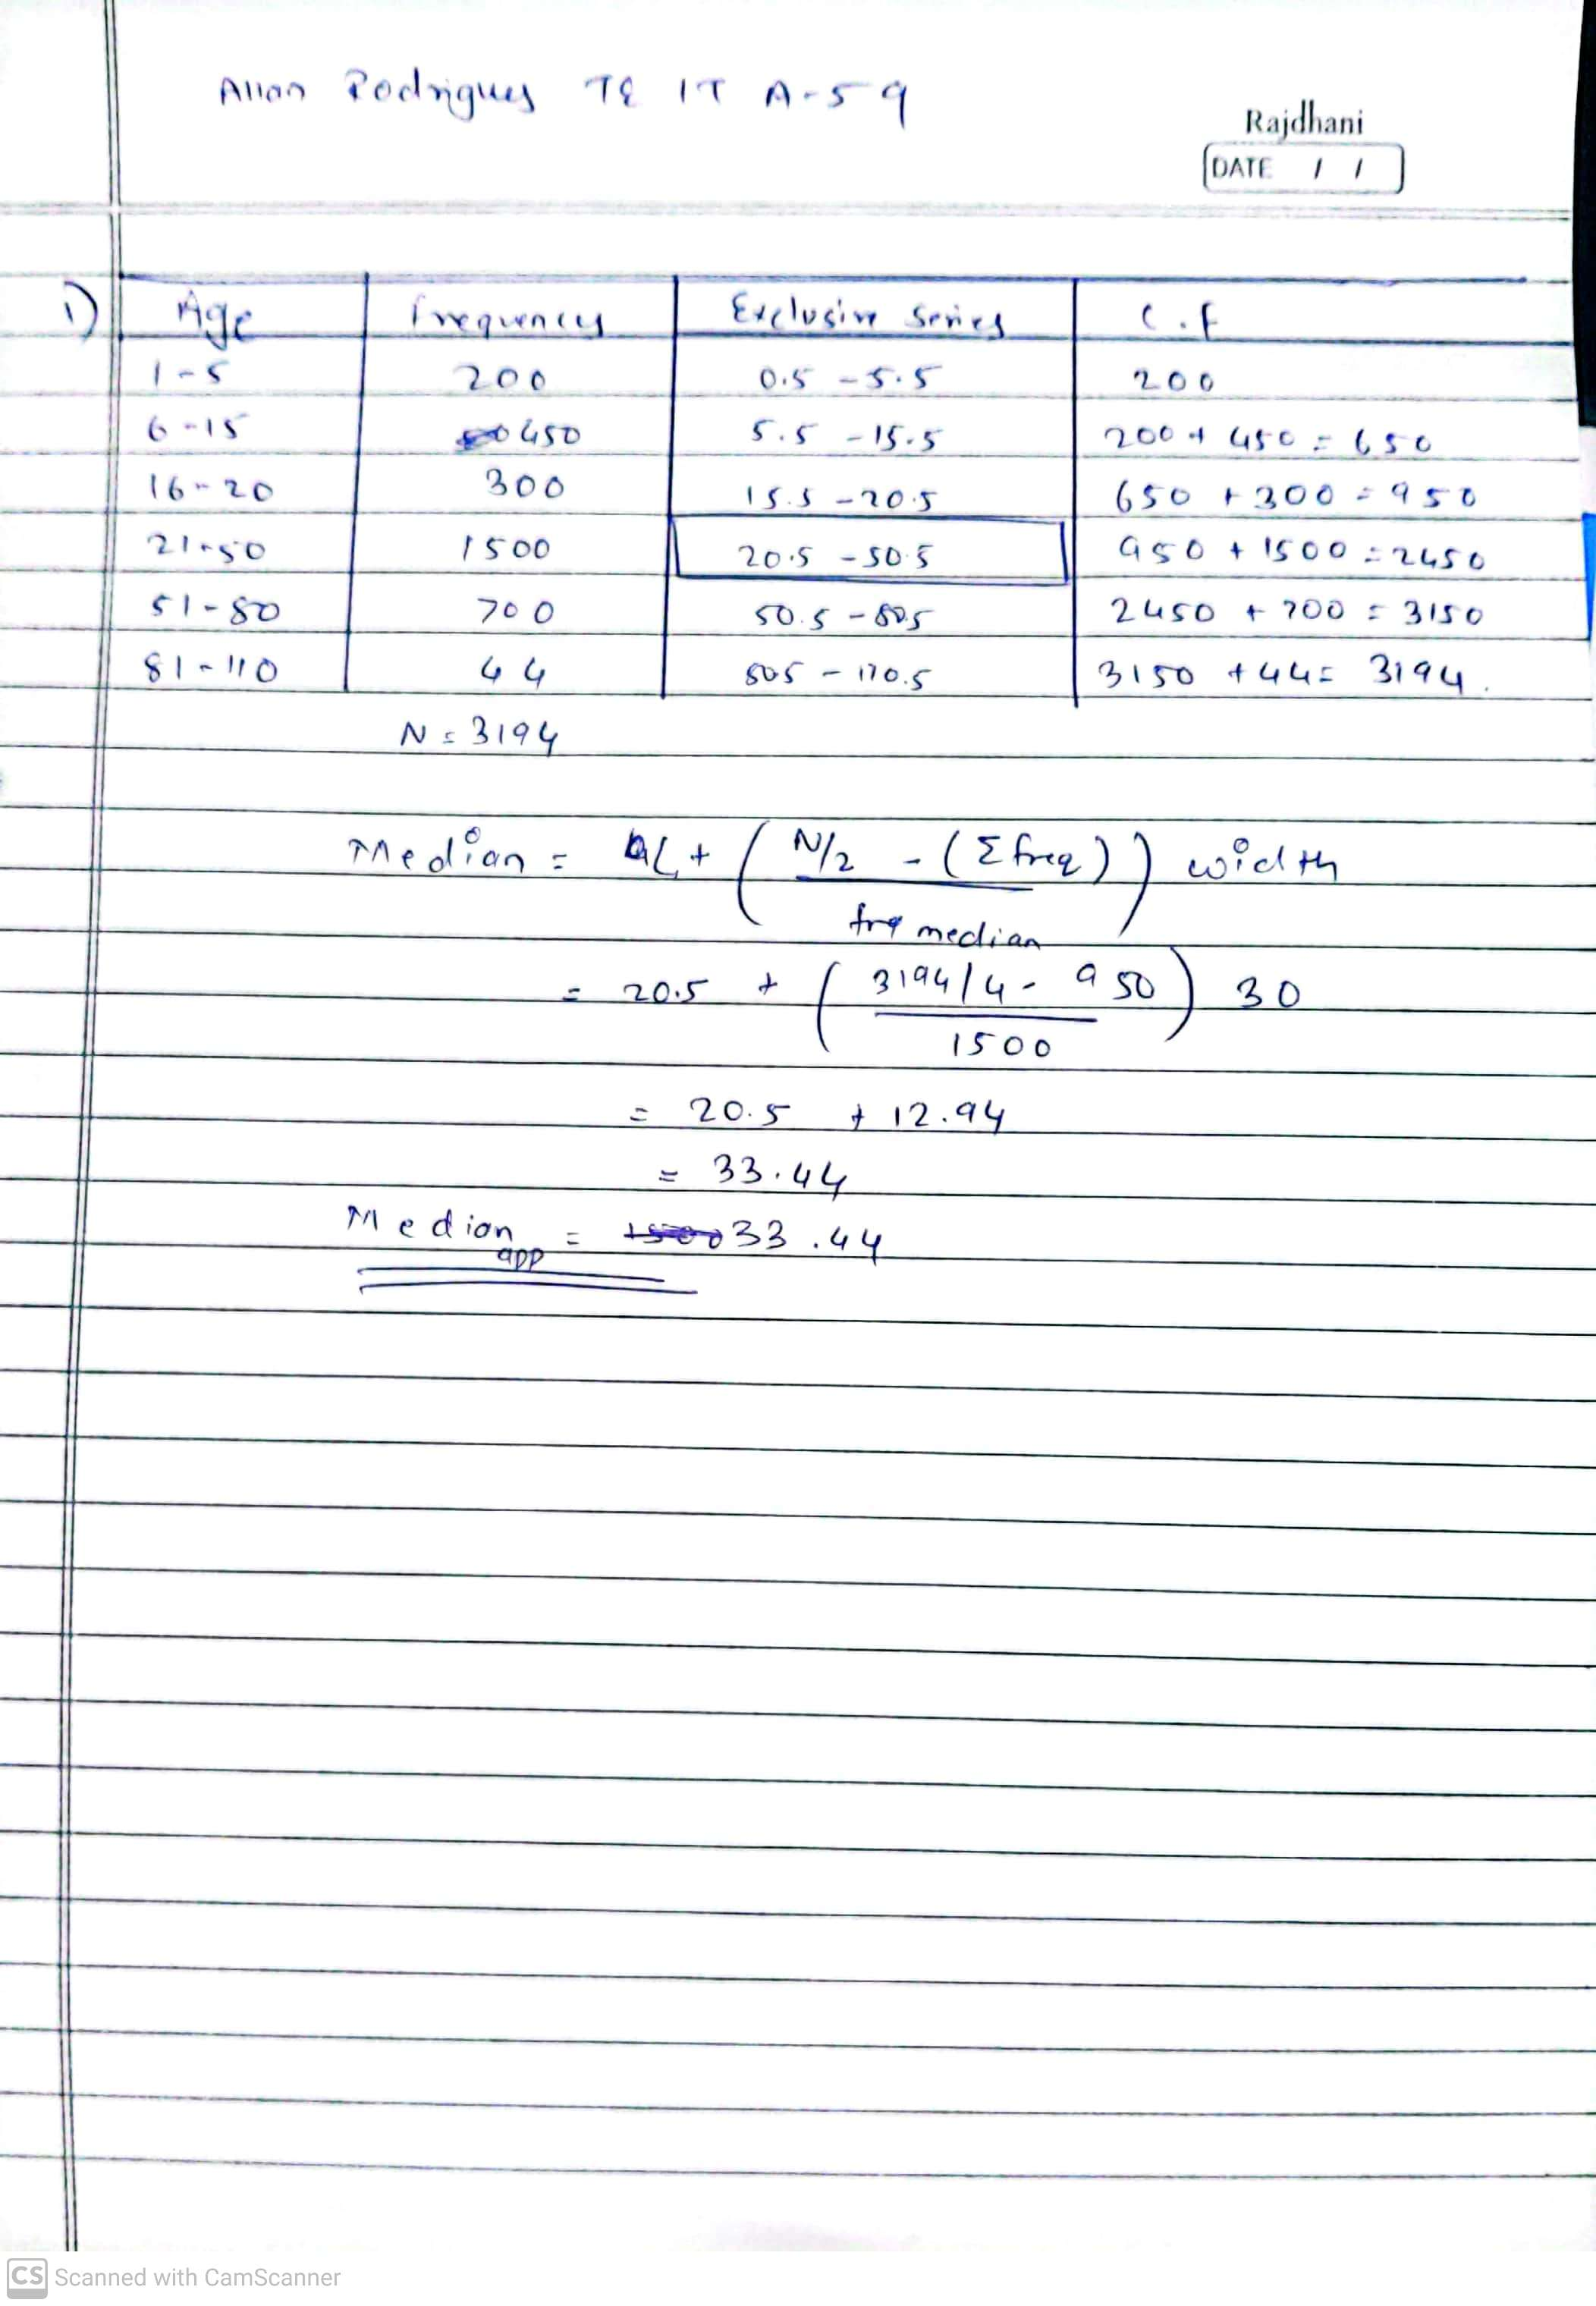 Allan Rodrigues TE IT A-59
Rajdhani
DATE / /
1) Age Frequency Exclusive Series C.f
1-5 200 0.5 - 5.5 200
6-15 450 5.5 - 15.5 200 + 450 = 650
16-20 300 15.5 - 20.5 650 + 300 = 950
21-50 1500 20.5 - 50.5 950 + 1500 = 2450
51-80 700 50.5 - 80.5 2450 + 700 = 3150
81-110 44 805 - 110.5 3150 + 44 = 3194.
N = 3194
Median = L + ( N/2 - (Σ freq) ) width
frq median
= 20.5 + ( 3194/4 - 950 ) 30
1500
= 20.5 + 12.94
= 33.44
Median = 33.44
app
CS Scanned with CamScanner